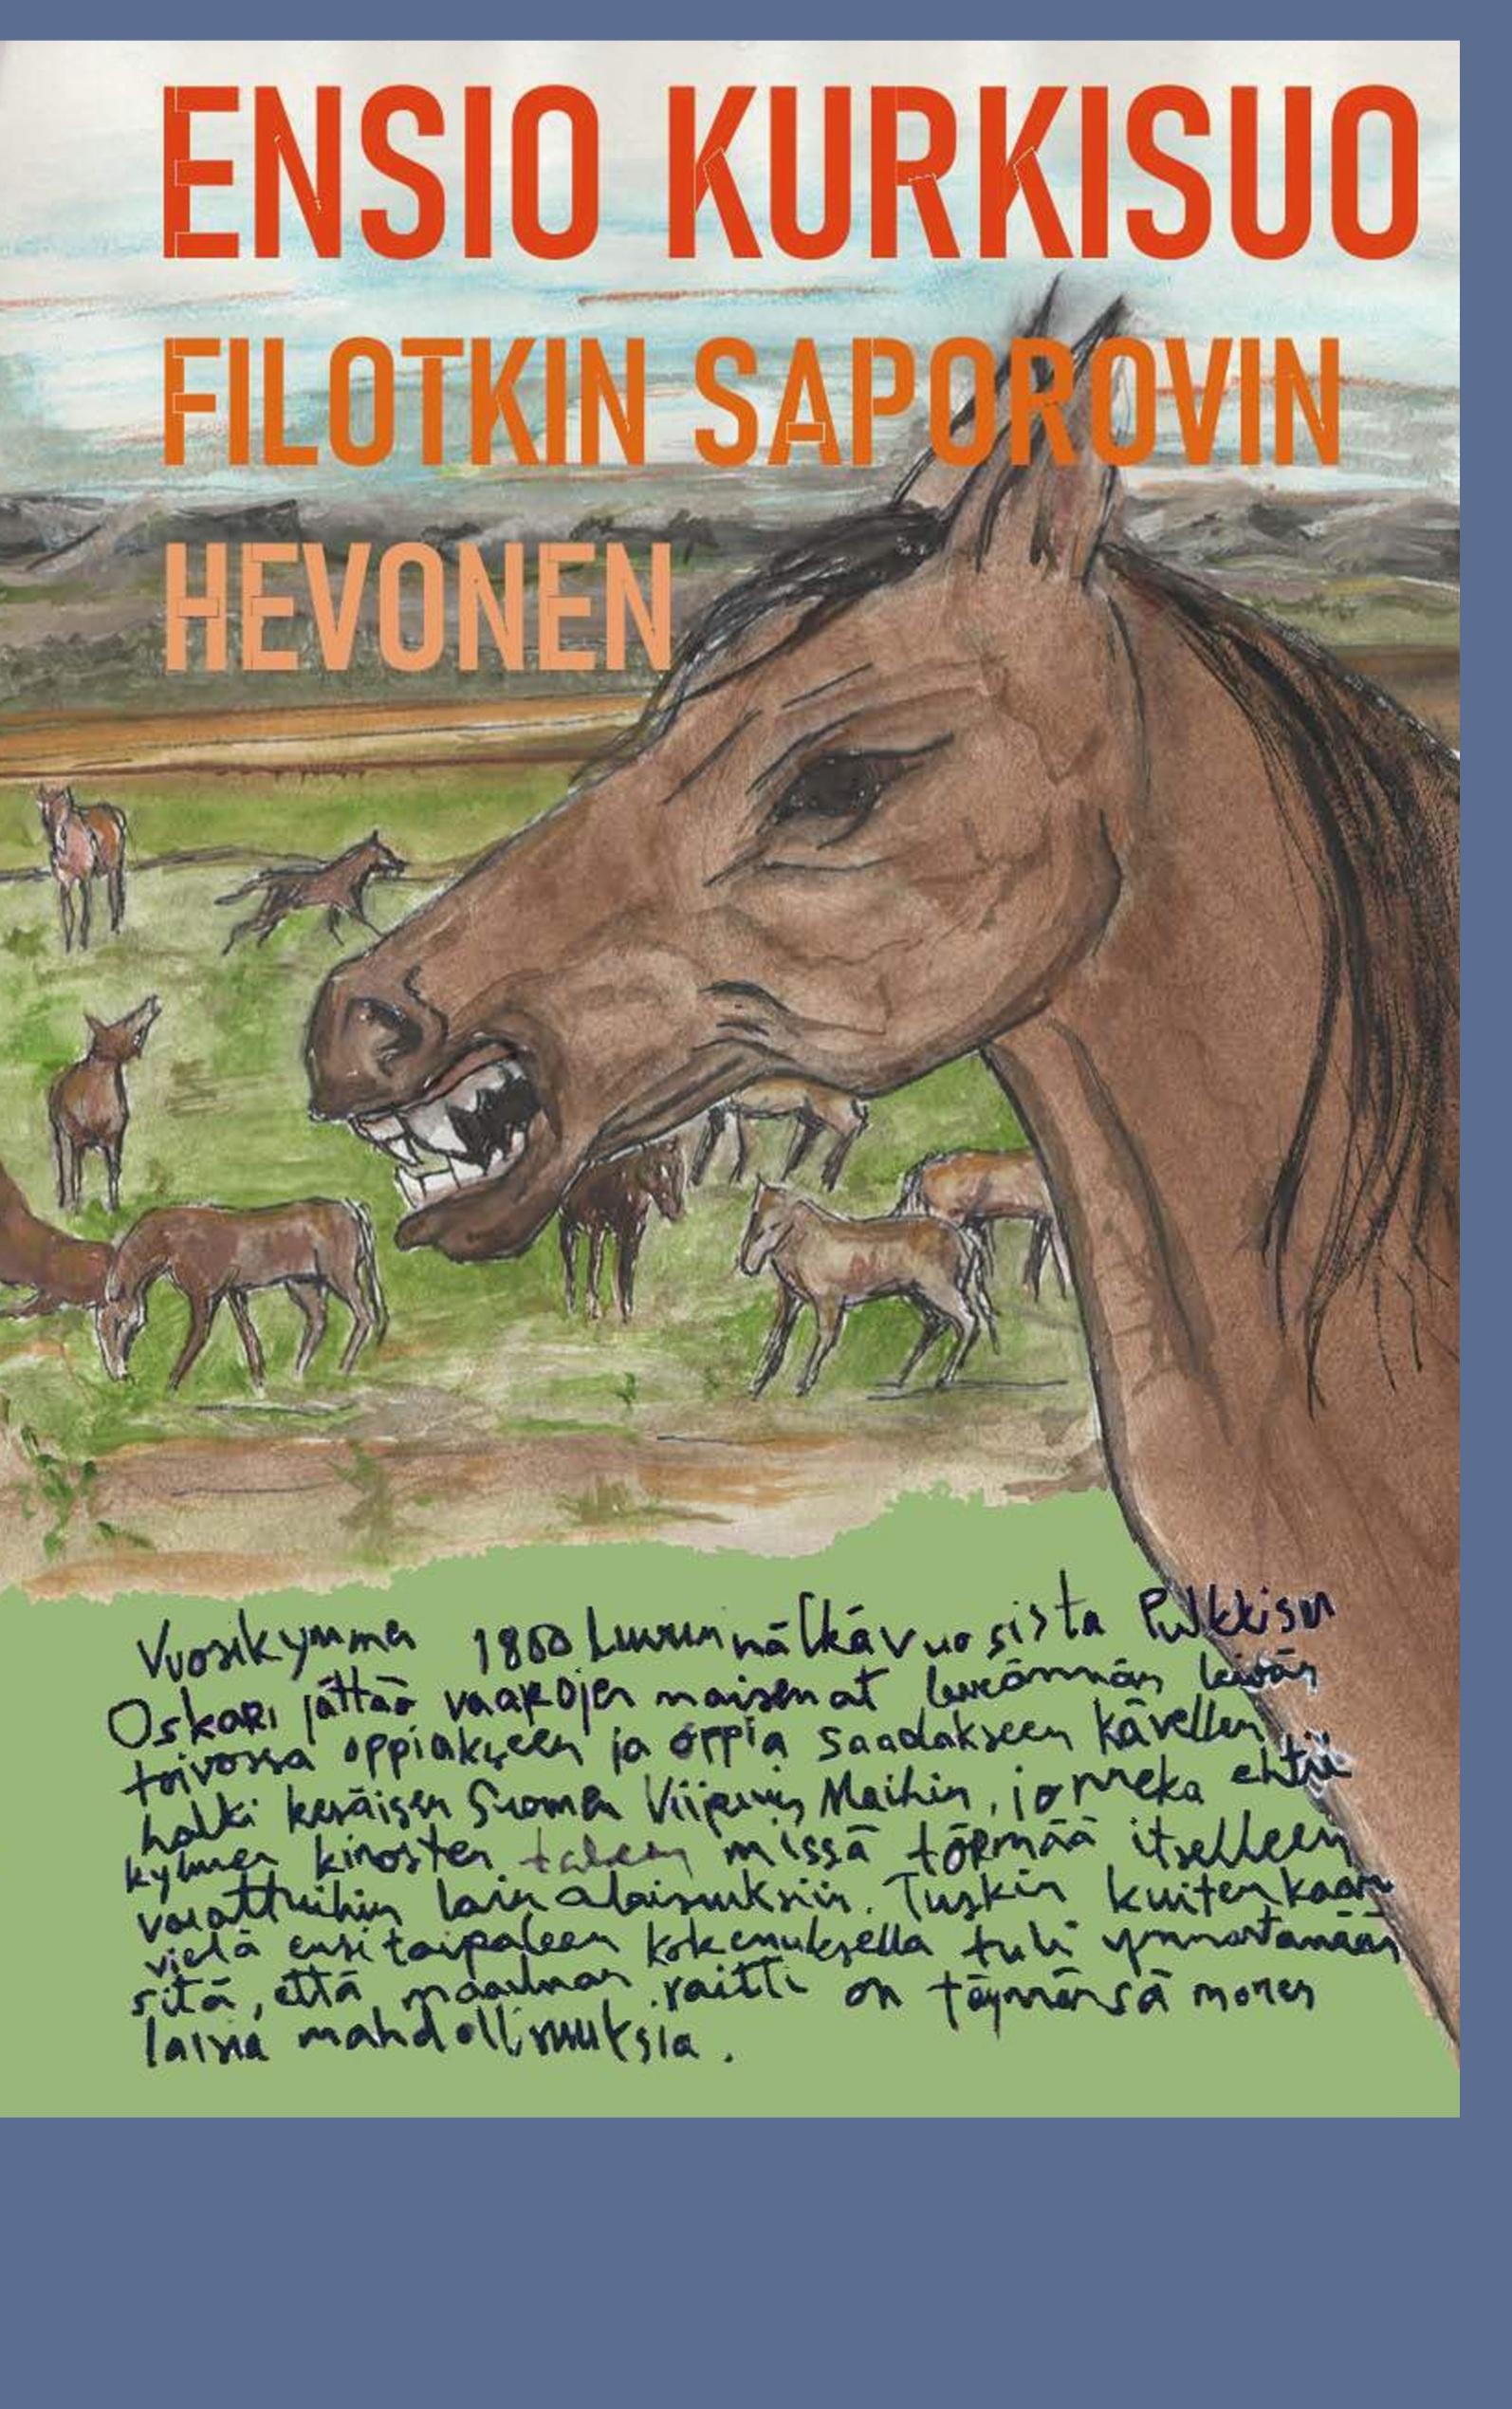 ENSIO KURKISUO
FILOTKIN SAPOROVIN
HEVONEN
Vuosikymmen 1860 luvun nälkävuosista Pulkkisen
Oskari jättää vaarojen maisemat leveämmän leivän
toivossa oppiakseen ja oppia saadakseen kävellen
halki kesäisen Suomen Viipurin Maihin, jonneka ehtii
kylmien kinosten taleen missä törmää itselleen
vierattuihin lain alaisuuksiin. Tuskin kuitenkaan
vielä ensi taipaleen kokemuksella tuli ymmärtämään
sitä, että maailman raitti on täynnänsä monen
laisia mahdollisuuksia.